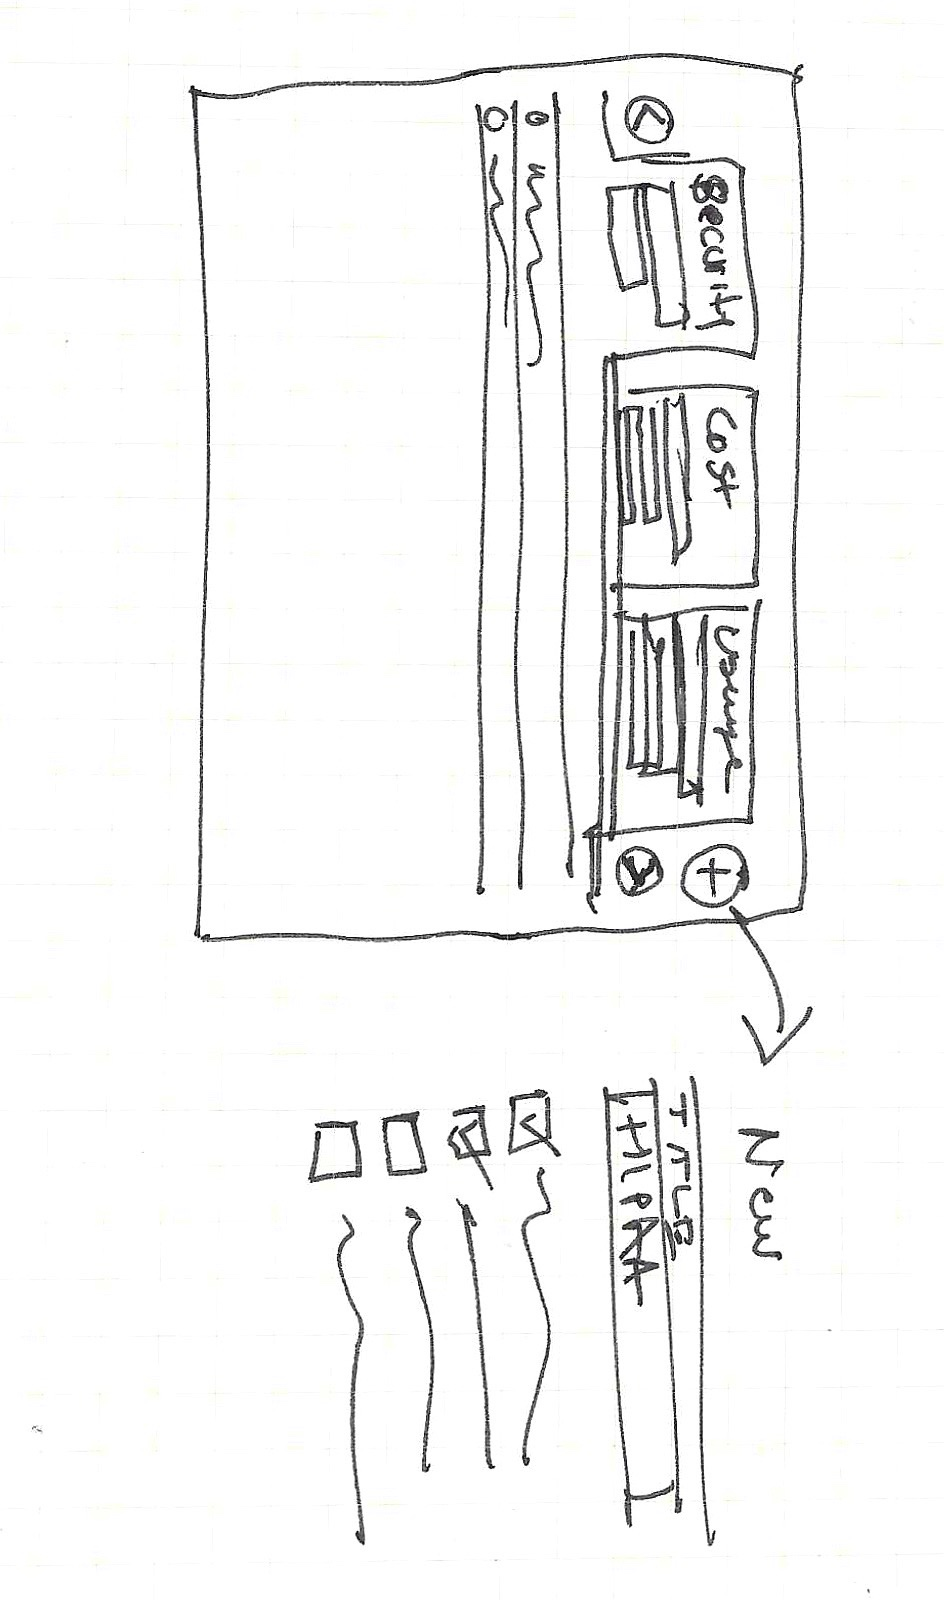 Security
Cost
Usage
New
TITLE
HIPAA